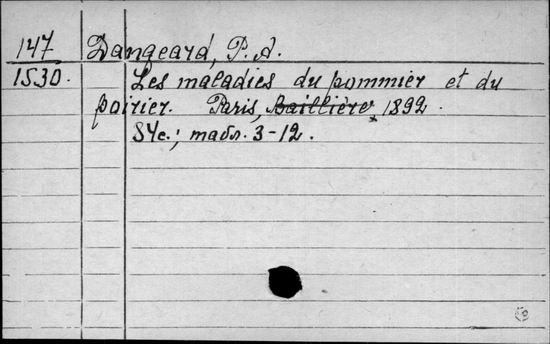 147 Dangeard, P. A.
1530. Les maladies du pommier et du
poirier. Paris, Baillière, 1892.
84c.; табл. 3-12.